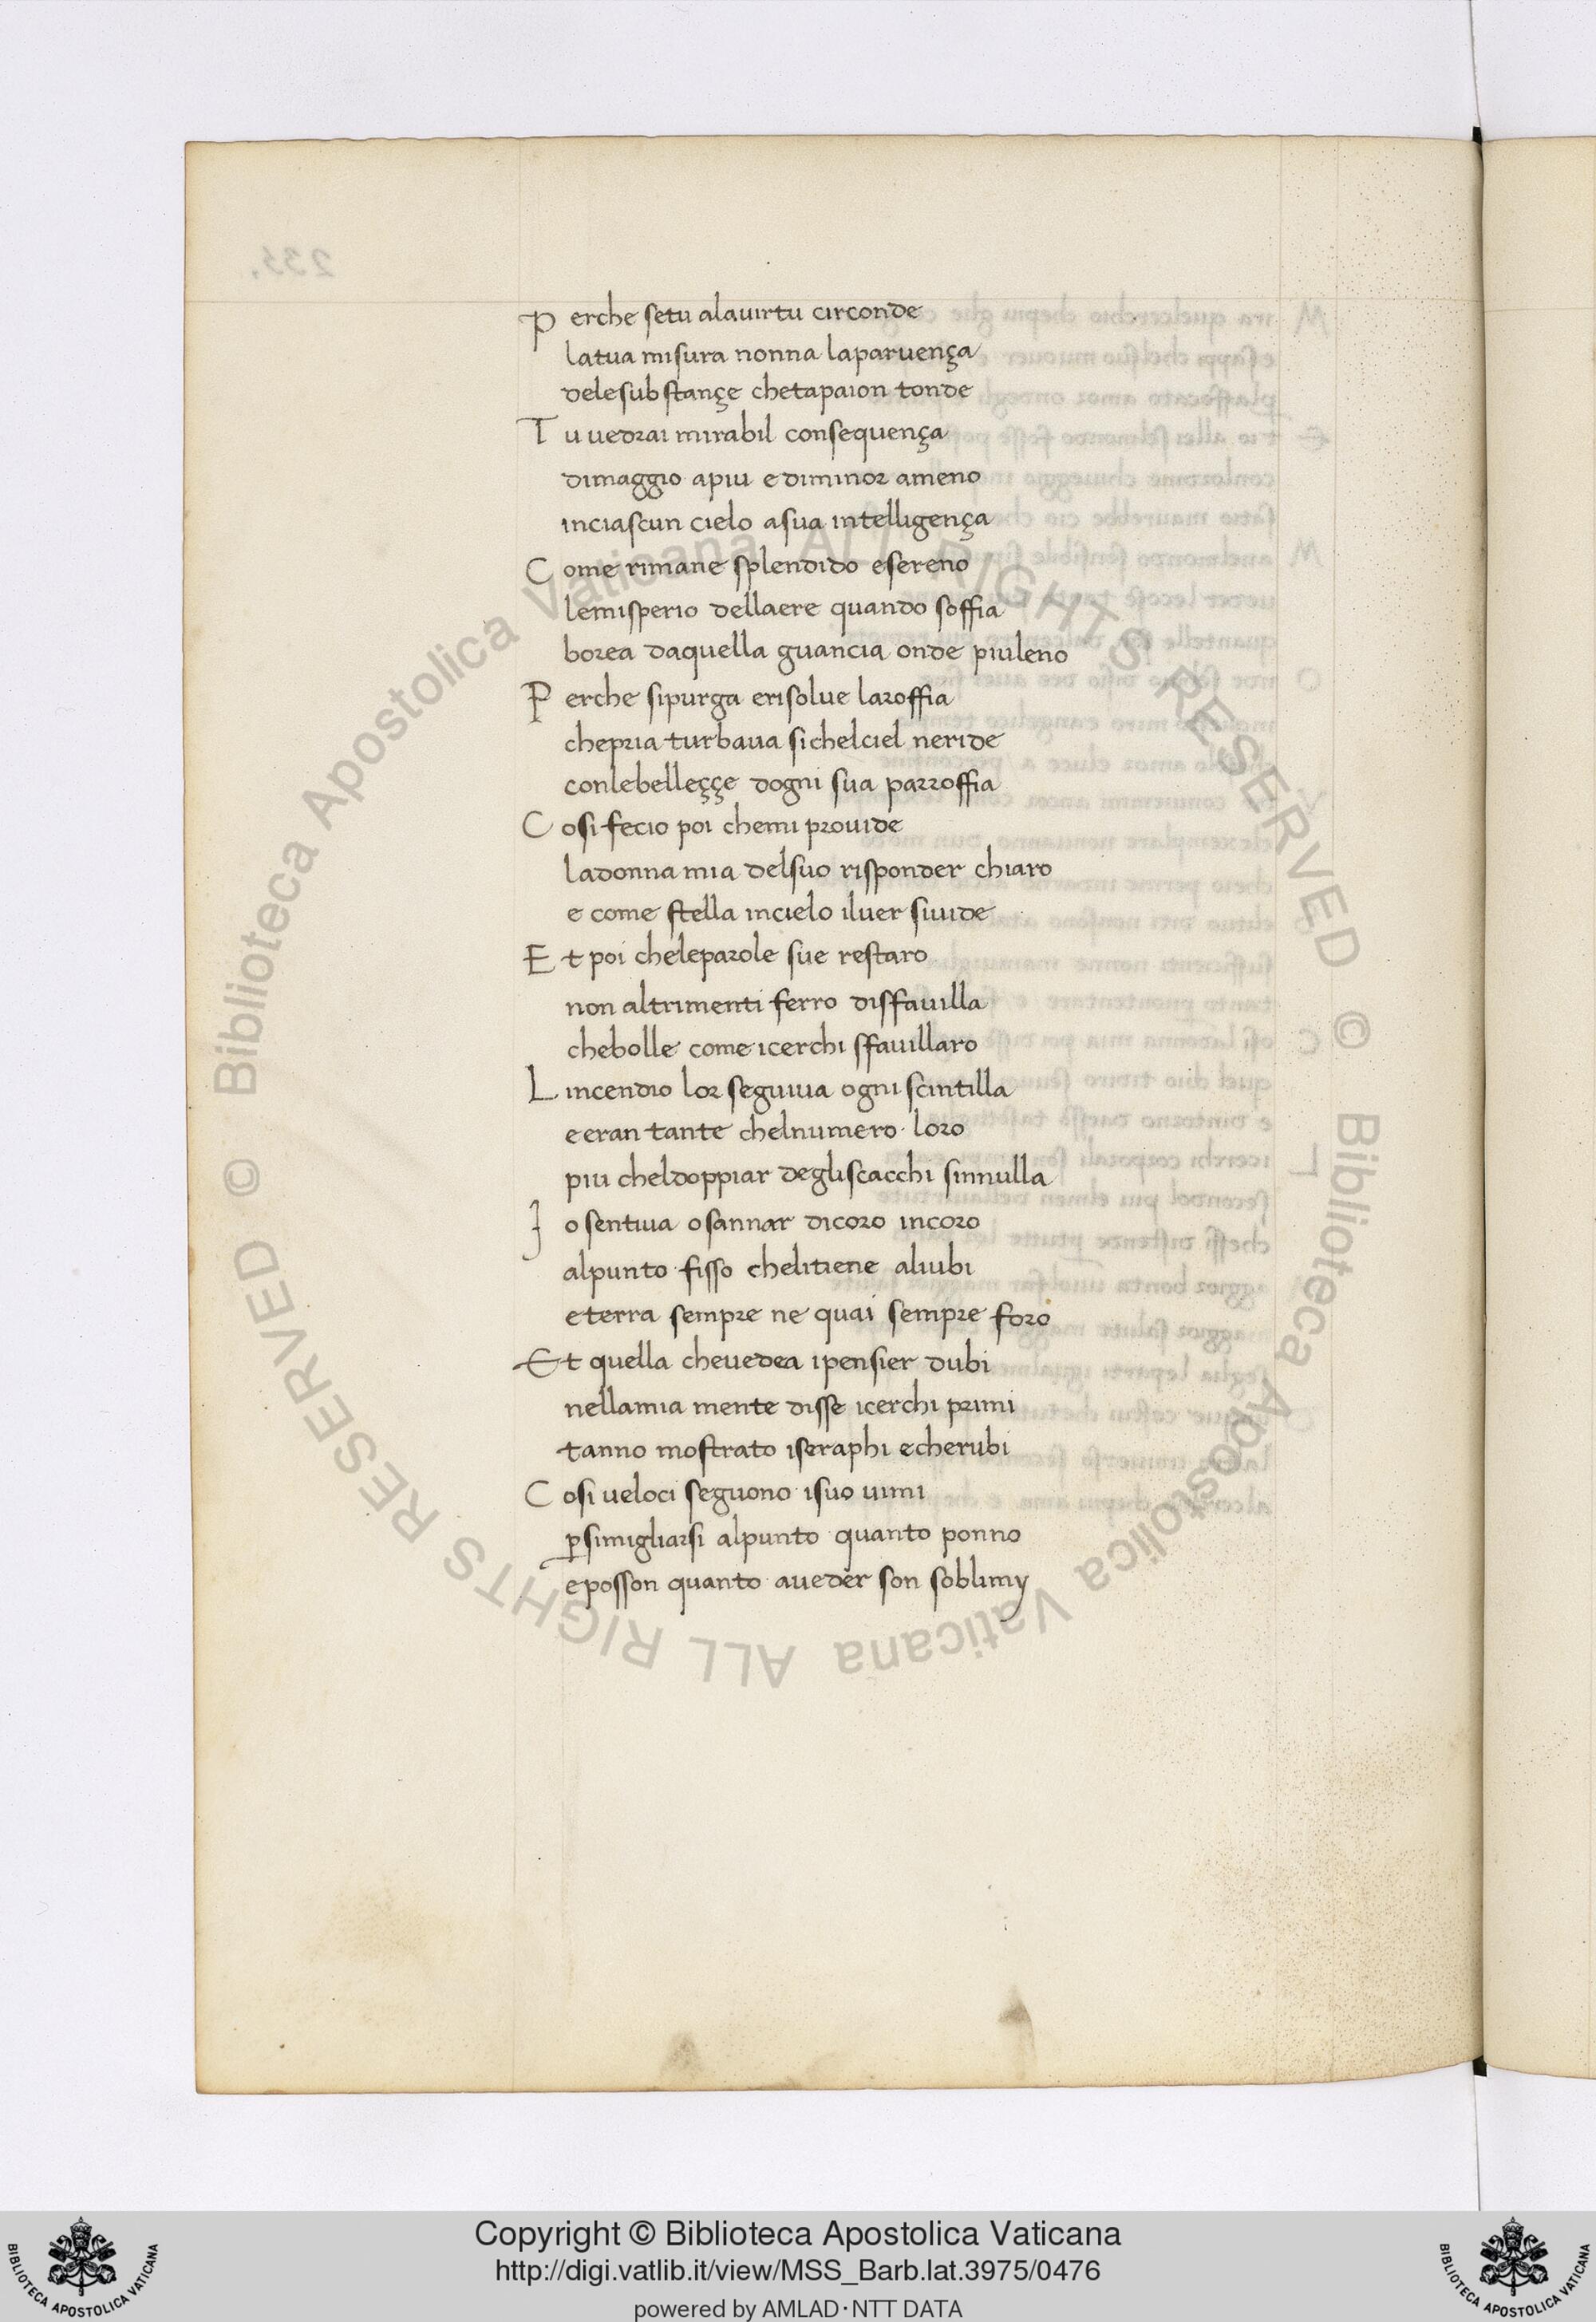 Perche setu alauirtu circonde
latua misura nonna laparuença
delesubstançe chetapaion tonde
Tu uedrai mirabil consequença
dimaggio apiu ediminor ameno
inciascun cielo asua intelligença
Come rimane splendido esereno
lemisperio dellaere quando soffia
borea daquella guancia onde piuleno
Perche sipurga erisolue laroffia
chepria turbaua sichelciel neride
conlebelleççe dogni sua parroffia
Cosi fecio poi chemi prouide
ladonna mia delsuo risponder chiaro
e come stella incielo iluer siuide
Et poi cheleparole sue restaro
non altrimenti ferro disfauilla
chebolle come icerchi sfauillaro
Lincendio lor seguiua ogni scintilla
eeran tante chelnumero loro
piu cheldoppiar degliscacchi sinnulla
Io sentiua osannar dicoro incoro
alpunto fisso chelitiene aliubi
eterra sempre ne quai sempre foro
Et quella cheuedea ipensier dubi
nellamia mente disse icerchi primi
tanno mostrato iseraphi echerubi
Cosi ueloci seguono isuo uimi
ꝑsimigliarsi alpunto quanto ponno
eposson quanto aueder son soblimy
233.
© Biblioteca Apostolica Vaticana ALL RIGHTS RESERVED
© Biblioteca Apostolica Vaticana ALL RIGHTS RESERVED
Copyright © Biblioteca Apostolica Vaticana
http://digi.vatlib.it/view/MSS_Barb.lat.3975/0476
powered by AMLAD·NTT DATA
BIBLIOTECA APOSTOLICA VATICANA
BIBLIOTECA APOSTOLICA VATICANA